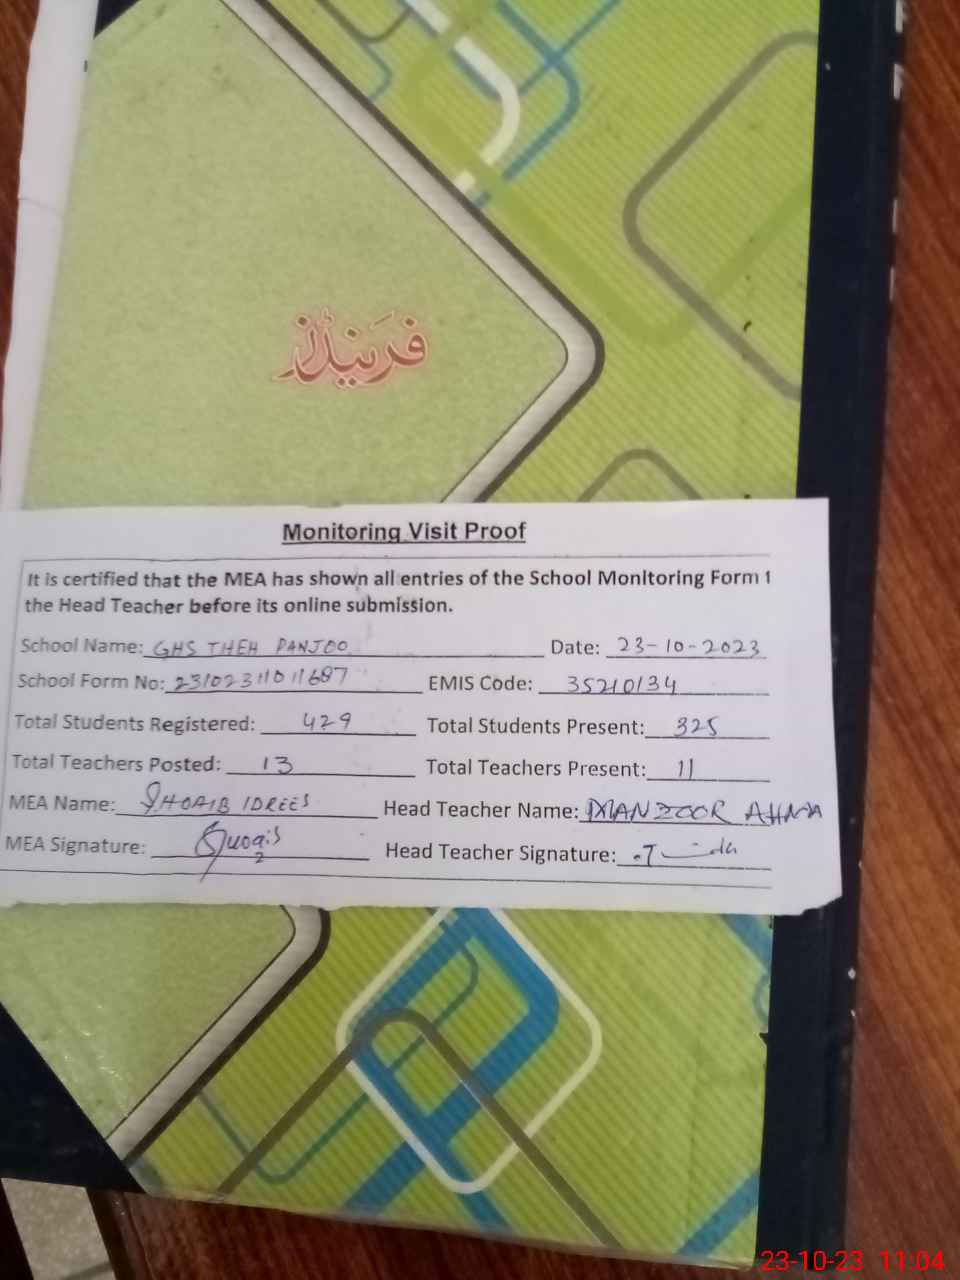 فرینڈز
Monitoring Visit Proof
It is certified that the MEA has shown all entries of the School Monitoring Form 1
the Head Teacher before its online submission.
School Name: GHS THEH PANJOO Date: 23-10-2023
School Form No: 23102311011687 EMIS Code: 35210134
Total Students Registered: 429 Total Students Present: 325
Total Teachers Posted: 13 Total Teachers Present: 11
MEA Name: SHOAIB IDREES Head Teacher Name: MANZOOR AHMA
MEA Signature: Head Teacher Signature:
23-10-23 11:04